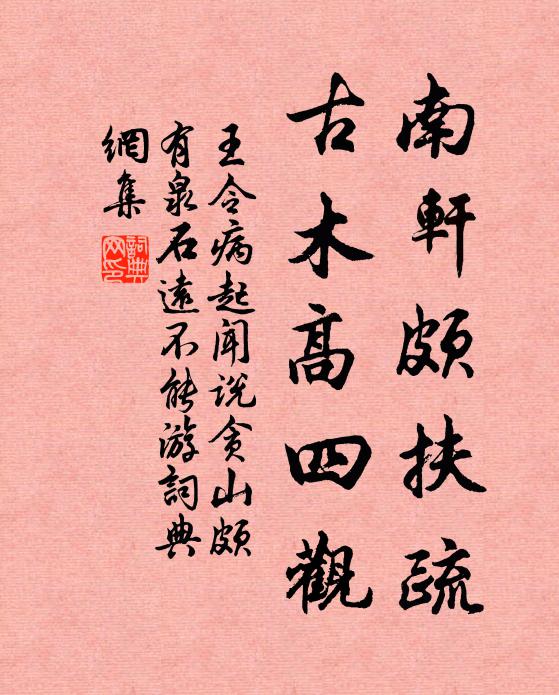 南軒頗扶疏
古木高四觀
王令病起聞說貪山頗
有泉石遠不能游詞典
網集
詞典網印